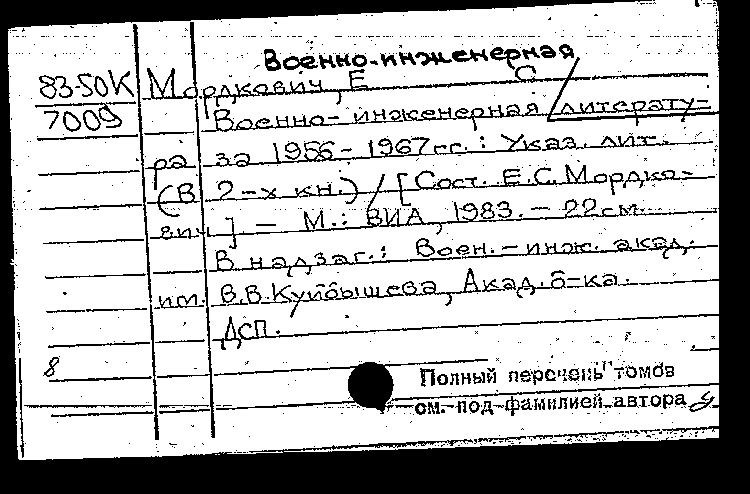 Военно-инженерная
83-50К Мордкович, Е С
7009 Военно-инженерная литерату-
ра за 1956-1967 гг.: Указ. лит.
(В 2-х кн.) / [Сост. Е.С. Мордко-
вич] - М.: ВИА, 1983. - 22 см.
В надзаг.: Воен.-инж. акад.
им. В.В. Куйбышева, Акад. б-ка.
Дсп.
8
Полный перечень томов
см. под фамилией автора